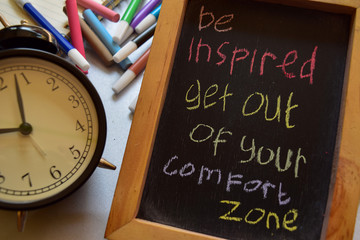 be
inspired
get out
of your
comfort
zone
12
1
2
3
4
5
6
7
8